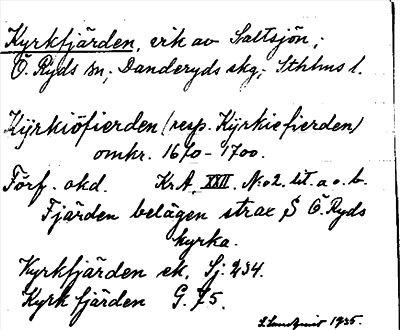 Kyrkfjärden, vik av Saltsjön;
Ö. Ryds sn; Danderyds skg; Sthlms l.
Kÿrkiöfierden (resp. Kÿrkiefierden)
omkr. 1670-1700.
Förf. okd. Kr.A. XXII. N:o 2. lit. a o. b.
Fjärden belägen strax S Ö. Ryds
kyrka.
Kyrkfjärden ek. Sj. 234.
Kyrkfjärden G. 75.
1935.